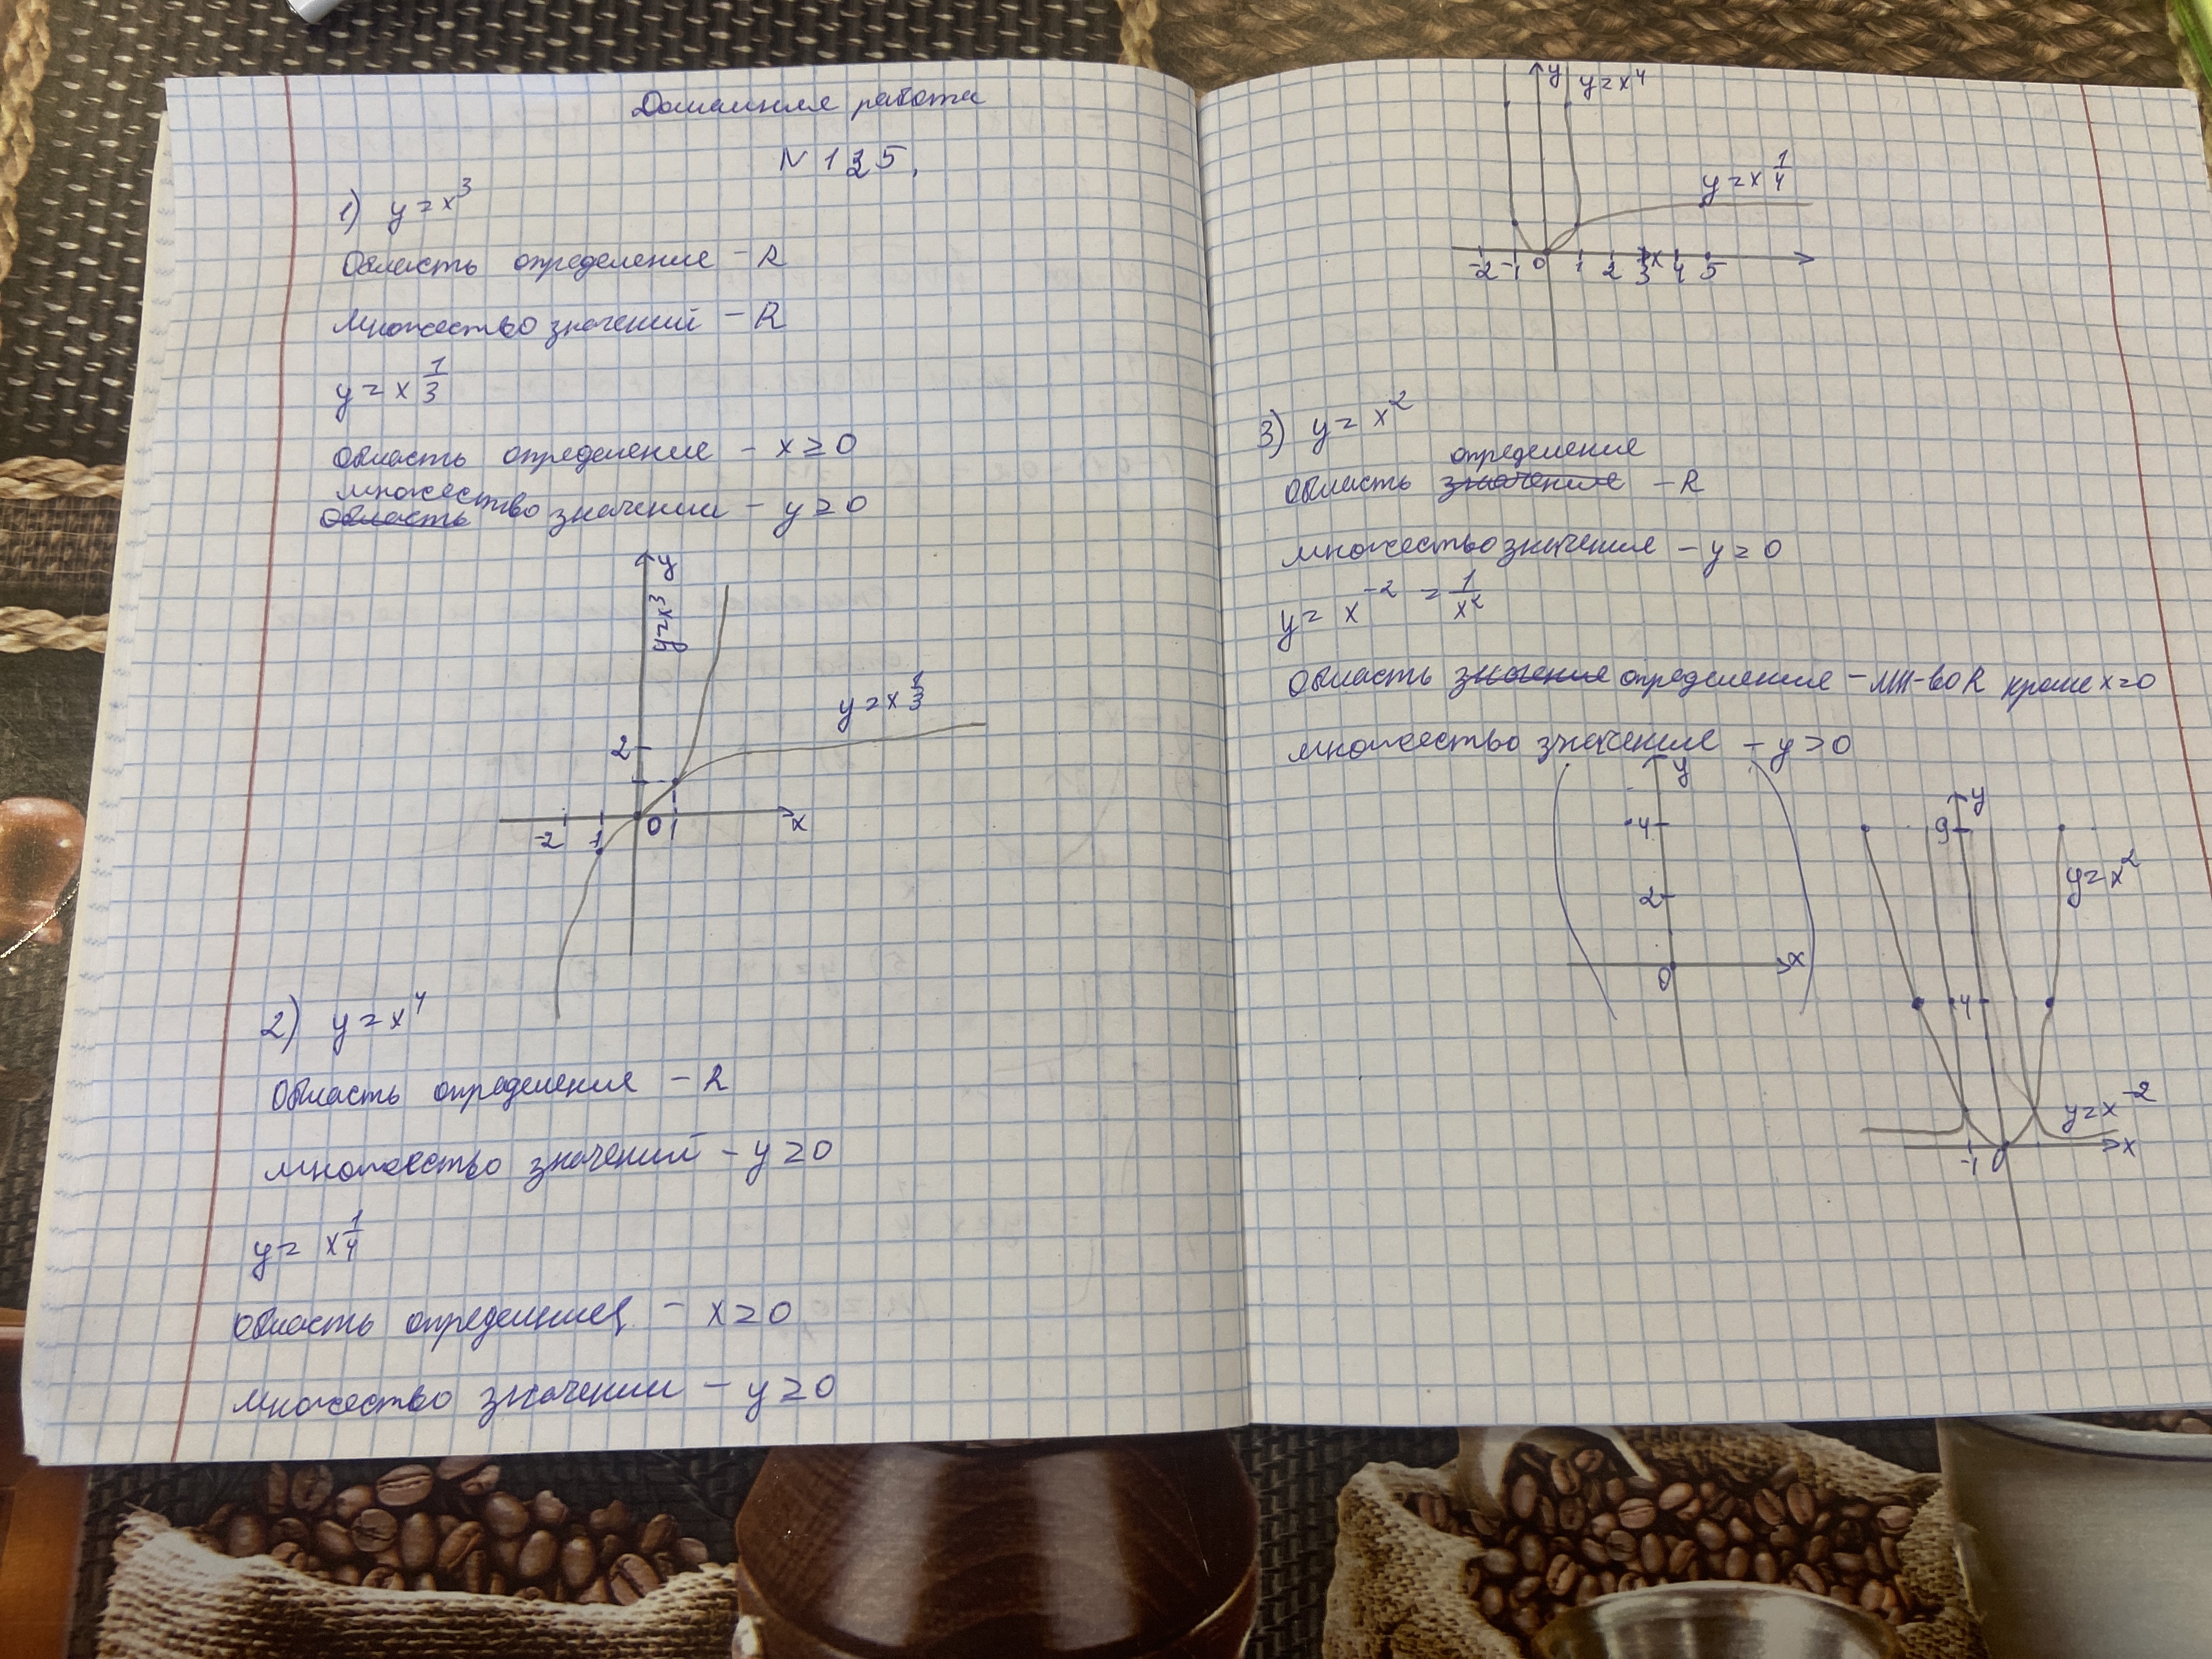 Домашняя работа
N 125.
1) y = x³
Область определение – R
Множество значений – R
y = x 1/3
Область определение – x ≥ 0
множество
Область значении – y ≥ 0
y
y=x³
y = x 1/3
2
-2 -1 0 1 x
2) y = x⁴
Область определения – R
множество значений – y ≥ 0
y = x 1/4
Область определения – x ≥ 0
множество значении – y ≥ 0
y y=x⁴
y = x 1/4
-2 -1 0 1 2 3 x 4 5
3) y = x²
определение
Область значение – R
множество значения – y ≥ 0
y = x⁻² = 1/x²
Область значения определения – мн-во R кроме x=0
множество значение – y > 0
y
4
2
0 x
y
9
y=x²
4
y=x⁻²
-1 0 x